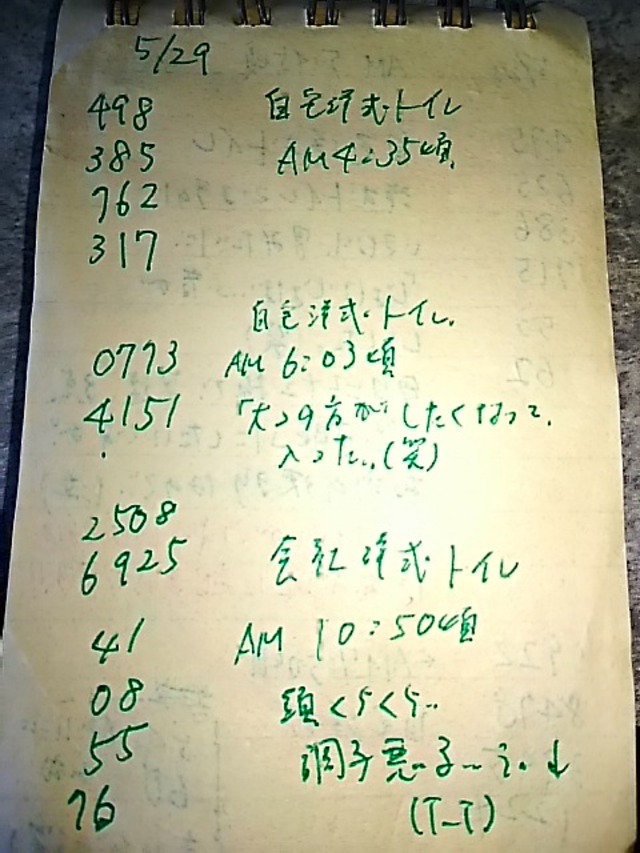 5/29
498 自宅洋式トイレ
385 AM4:35頃
762
317
自宅洋式トイレ.
0773 AM 6:03頃
4151 「大」の方がしたくなって、
入った..(笑)
2508
6925 会社洋式トイレ
41 AM 10:50頃
08 頭くらくら..
55 調子悪
76 (T_T)